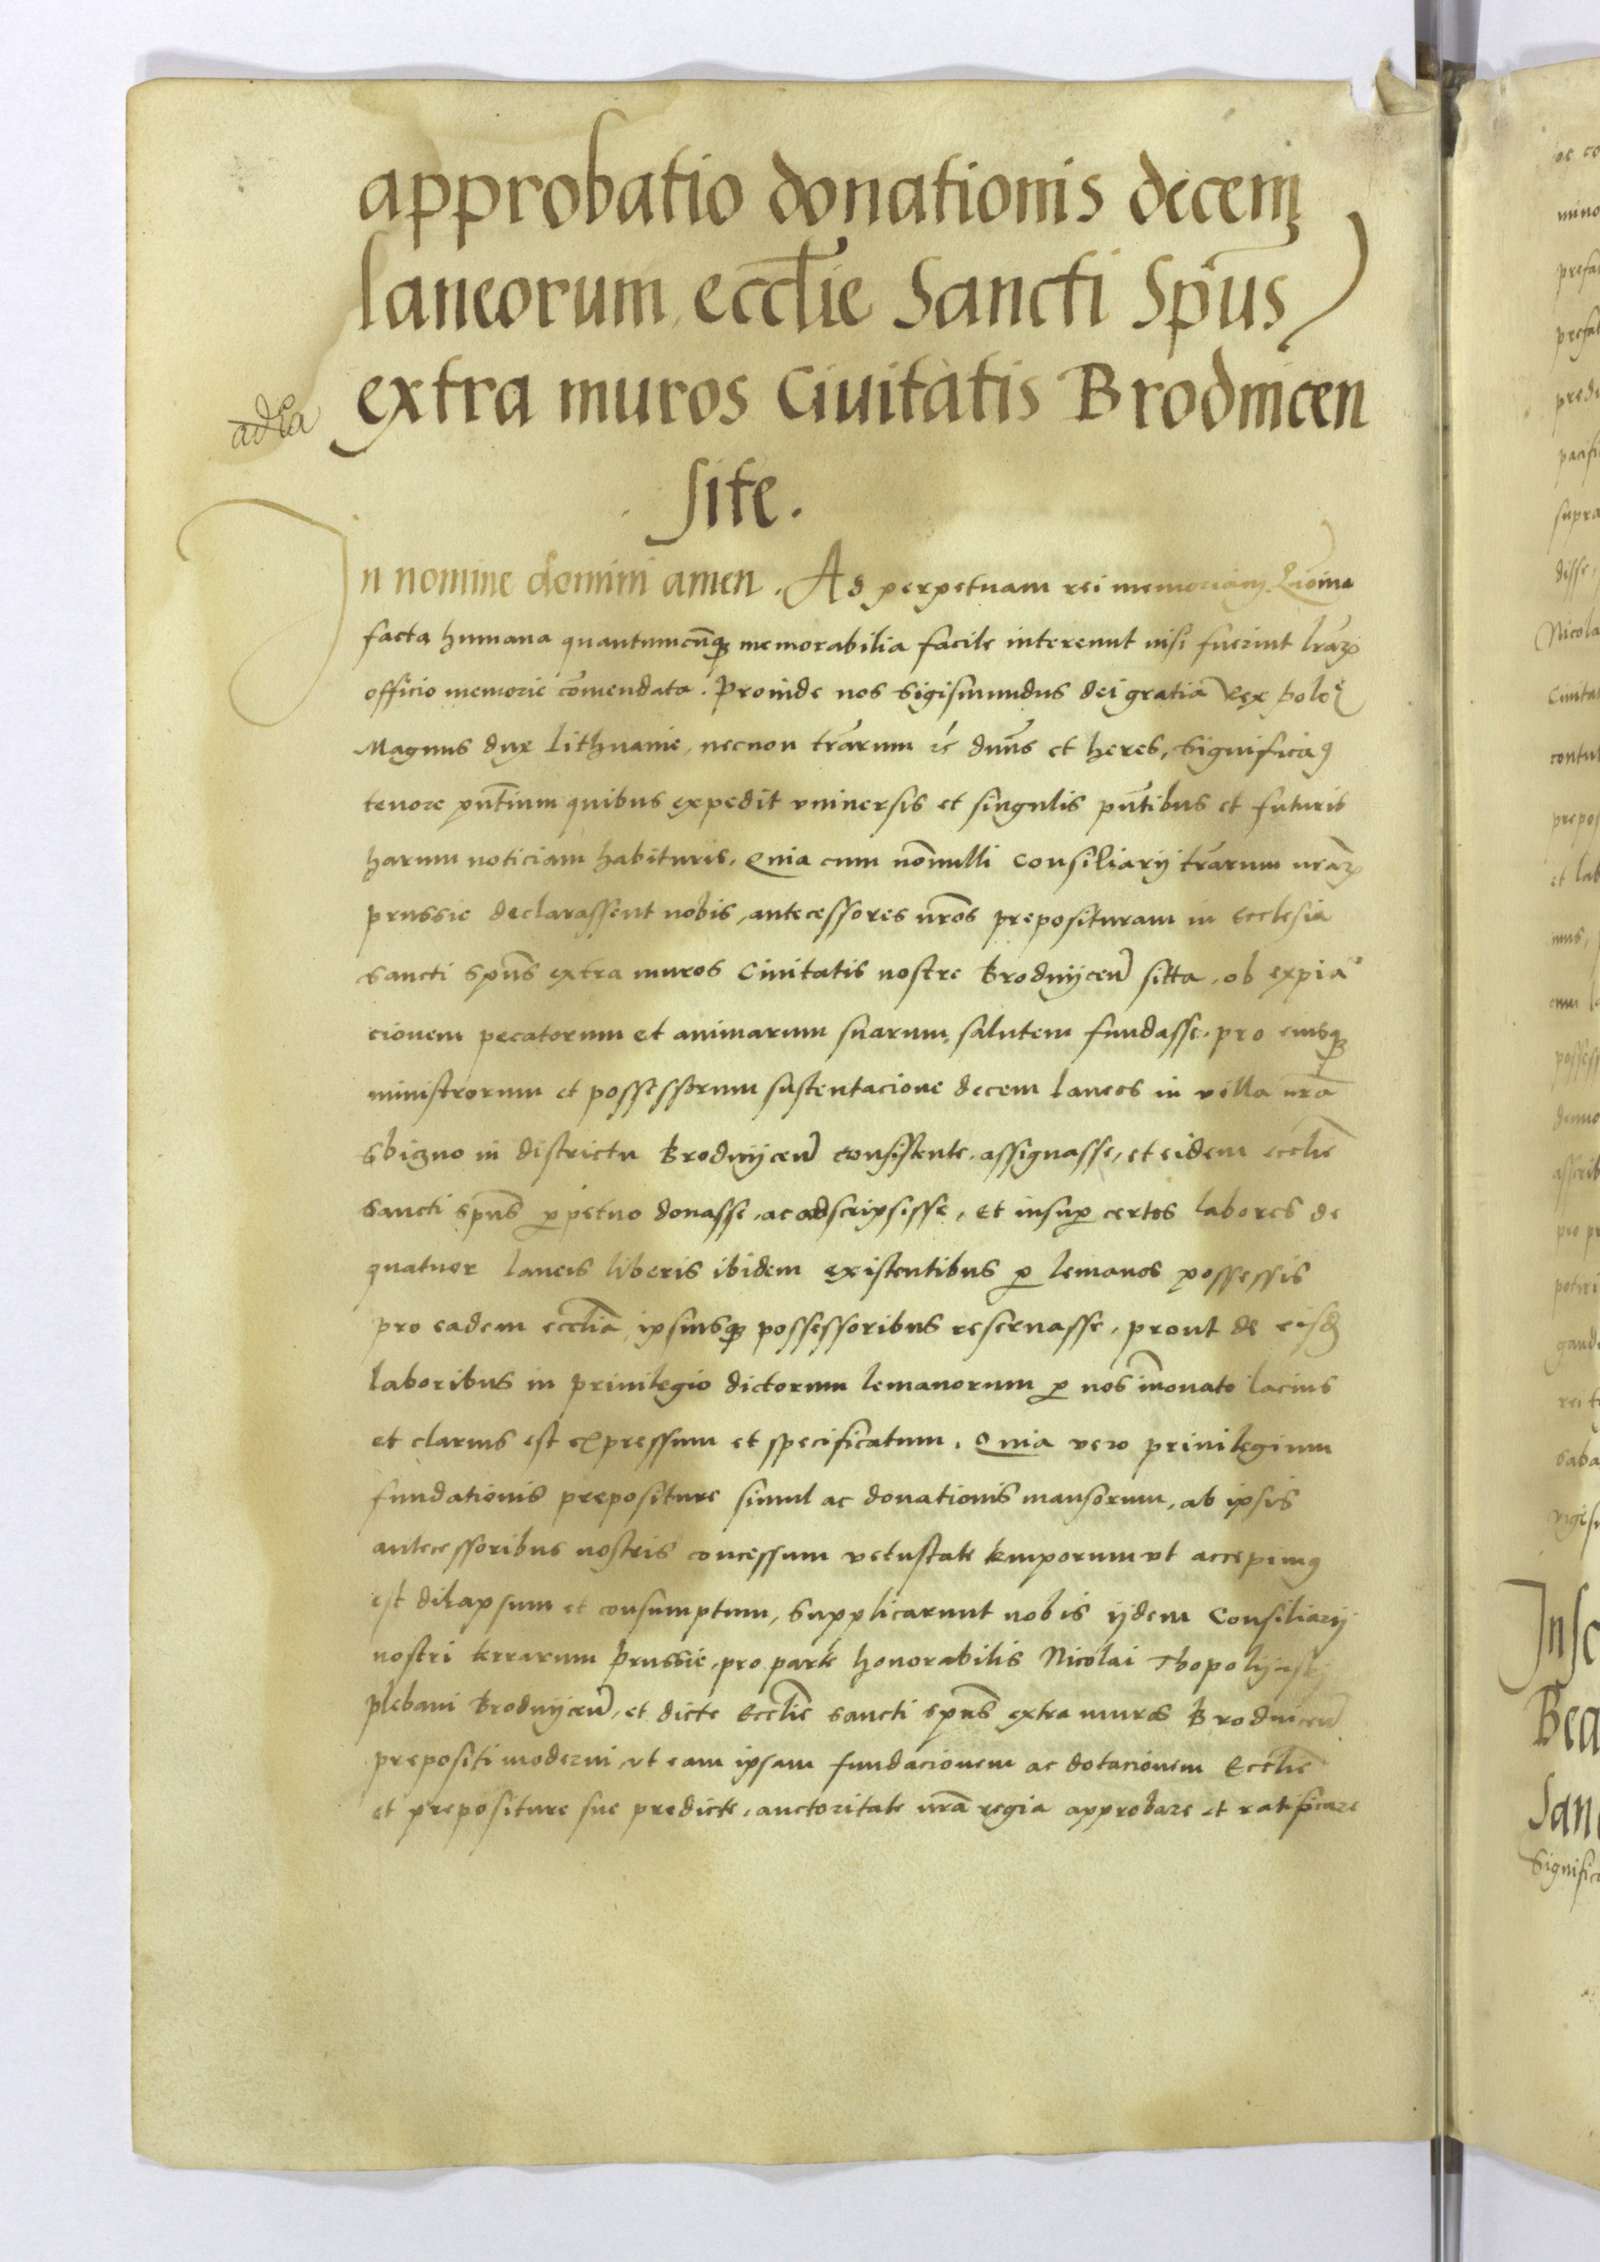 approbatio donationis decem
laneorum ecclie Sancti Spus
extra muros Ciuitatis Brodnicen
site.
In nomine domini amen. Ad perpetuam rei memoriam. Quoniam
facta humana quantumcunq memorabilia facile intereunt nisi fuerint lrarum
officio memorie comendata. Proinde nos Sigismundus dei gratia Rex Polo
Magnus dux Lithuanie, necnon trarum etc dnus et heres, Significam9
tenore pntium quibus expedit vniuersis et singulis pntibus et futuris
harum noticiam habituris, Quia cum nonnulli Consiliarij trarum nrarum
prussie declarassent nobis, antecessores nros preposituram in Ecclesia
sancti Spus extra muros Ciuitatis nostre Brodnijcen sitta, ob expia
cionem pecatorum et animarum suarum salutem fundasse, pro eiusq
ministrorum et possessorum sustentacione decem laneos in villa nra
Sbigno in districtu Brodnijcen consistente, assignasse, et eidem ecclie
sancti Spus ppetuo donasse, ac adscripsisse, et insup certos labores de
quatuor laneis liberis ibidem existentibus p lemanos possessis
pro eadem ecclia ipsiusq possessoribus reseruasse, prout de eisd
laboribus in priuilegio dictorum lemanorum p nos innouato lacius
et clarius est expressum et specificatum. Quia vero priuilegium
fundationis prepositure simul ac donationis mansorum, ab ipsis
antecessoribus nostris concessum vetustate temporum vt accepim9
est dilapsum et consumptum, Supplicarunt nobis ijdem Consiliarij
nostri terrarum Prussie, pro parte honorabilis Nicolai Thopolijnskj
plebani Brodnijcen, et dicte Ecclie sancti Spus extra muros Brodnicen
prepositi moderni, vt eam ipsam fundacionem ac dotacionem Ecclie
et prepositure sue predicte, auctoritate nra regia approbare et ratificare
Nicola
supra
Insc
Bea
Sanc
Signific